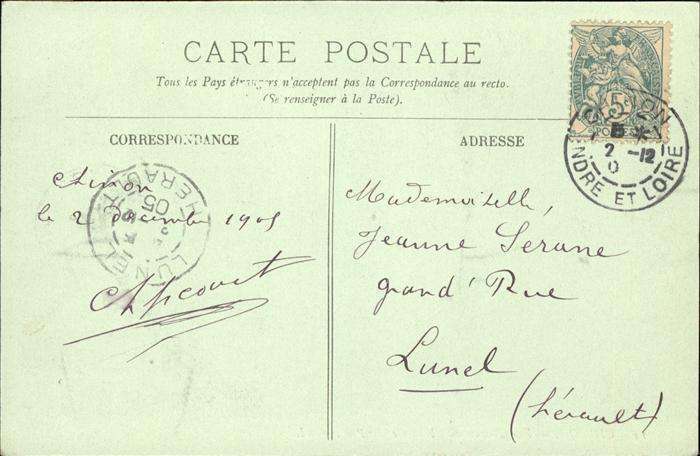 CARTE POSTALE
Tous les Pays étrangers n'acceptent pas la Correspondance au recto.
(Se renseigner à la Poste).
CORRESPONDANCE
Chinon
le 2 décembre 1905
ADRESSE
Mademoiselle,
Jeanne Serane
grand' Rue
Lunel
(hérault)
5c
CHINON
2 -12
0
INDRE ET LOIRE
LUNEL
05
HERAULT